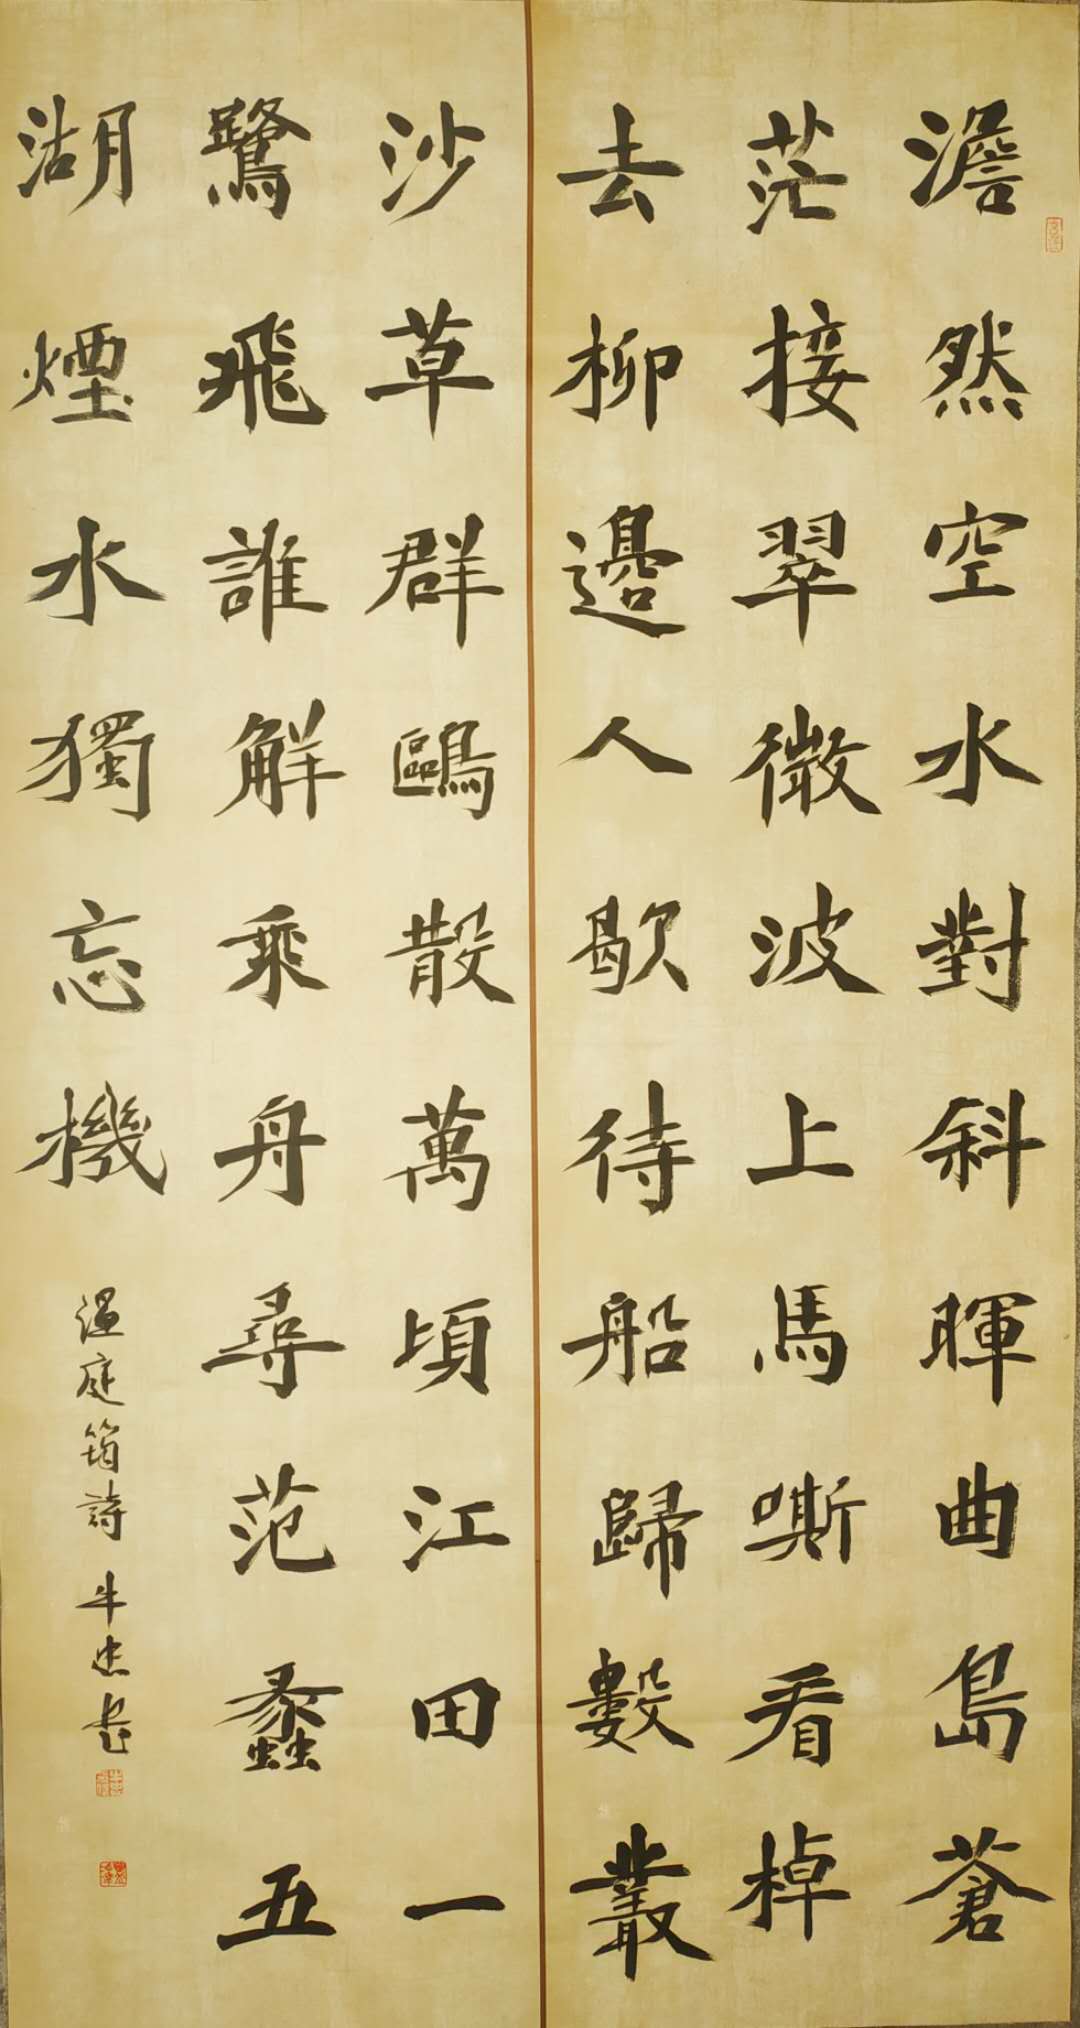 澹然空水對斜暉曲島蒼
茫接翠微波上馬嘶看棹
去柳邊人歇待船歸數叢
沙草群鷗散萬頃江田一
鷺飛誰解乘舟尋范蠡五
湖煙水獨忘機
溫庭筠詩 牛忠書